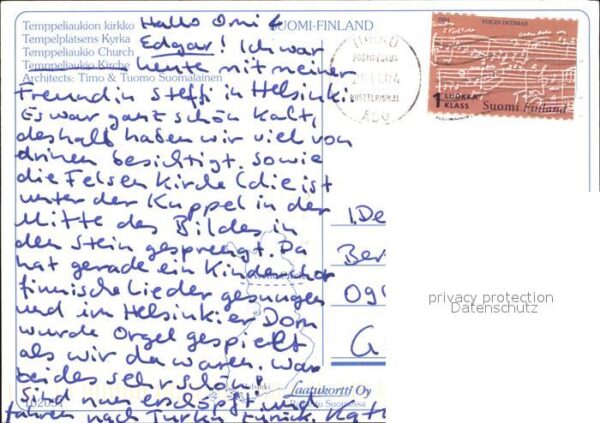 Temppeliaukion kirkko
Tempelplatsens Kyrka
Temppeliaukio Church
Temppeliaukio Kirche
Architects: Timo & Tuomo Suomalainen
SUOMI-FINLAND
Hallo Omi &
Edgar! Ich war
heute mit meiner
Freundin Steffi in Helsinki.
Es war ganz schön kalt,
deshalb haben wir viel von
drinnen besichtigt. sowie
die Felsenkirche (die ist
unter der Kuppel in der
Mitte des Bildes in
den Stein gesprengt. Da
hat gerade ein Kinderchor
finnische Lieder gesungen
und im Helsinkier Dom
wurde Orgel gespielt
als wir da waren. War
beides sehr schön!
Sind nun erschöpft und
fahren nach Turku zurück. Kath
VOCES INTIMAE
1 LUOKKA
KLASS
Suomi Finland
TURKU
POSTIKESKUS
POSTTERMINAL
ÅBO
Ber
G
privacy protection
Datenschutz
Helsinki
Laatukortti Oy